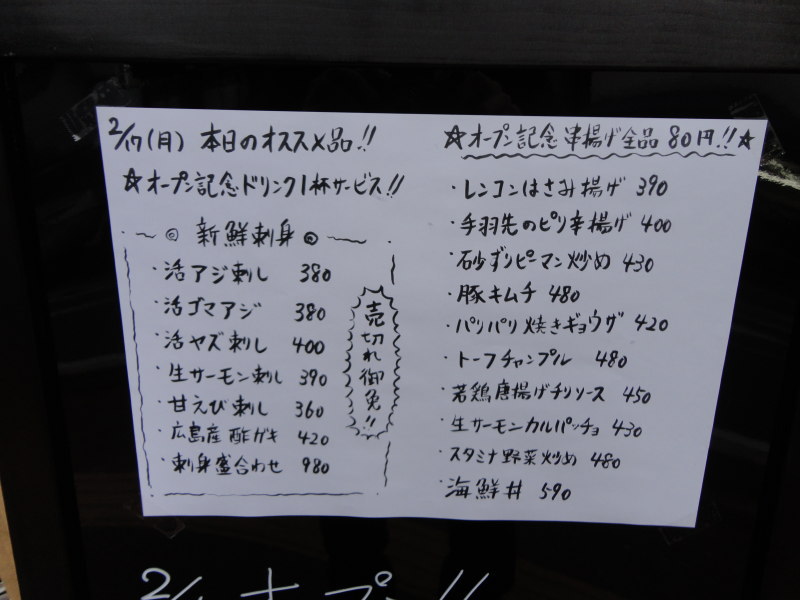 2/17(月) 本日のオススメ品!!
☆オープン記念ドリンク1杯サービス!!
◎ 新鮮刺身 ◎
・活アジ刺し 380
・活ゴマアジ 380
・活ヤズ刺し 400
・生サーモン刺し 390
・甘えび刺し 360
・広島産酢ガキ 420
・刺身盛合わせ 980
売切れ御免!!
☆オープン記念串揚げ全品80円!!☆
・レンコンはさみ揚げ 390
・手羽先のピリ辛揚げ 400
・砂ずりピーマン炒め 430
・豚キムチ 480
・パリパリ焼きギョウザ 420
・トーフチャンプル 480
・若鶏唐揚げチリソース 450
・生サーモンカルパッチョ 430
・スタミナ野菜炒め 480
・海鮮丼 590